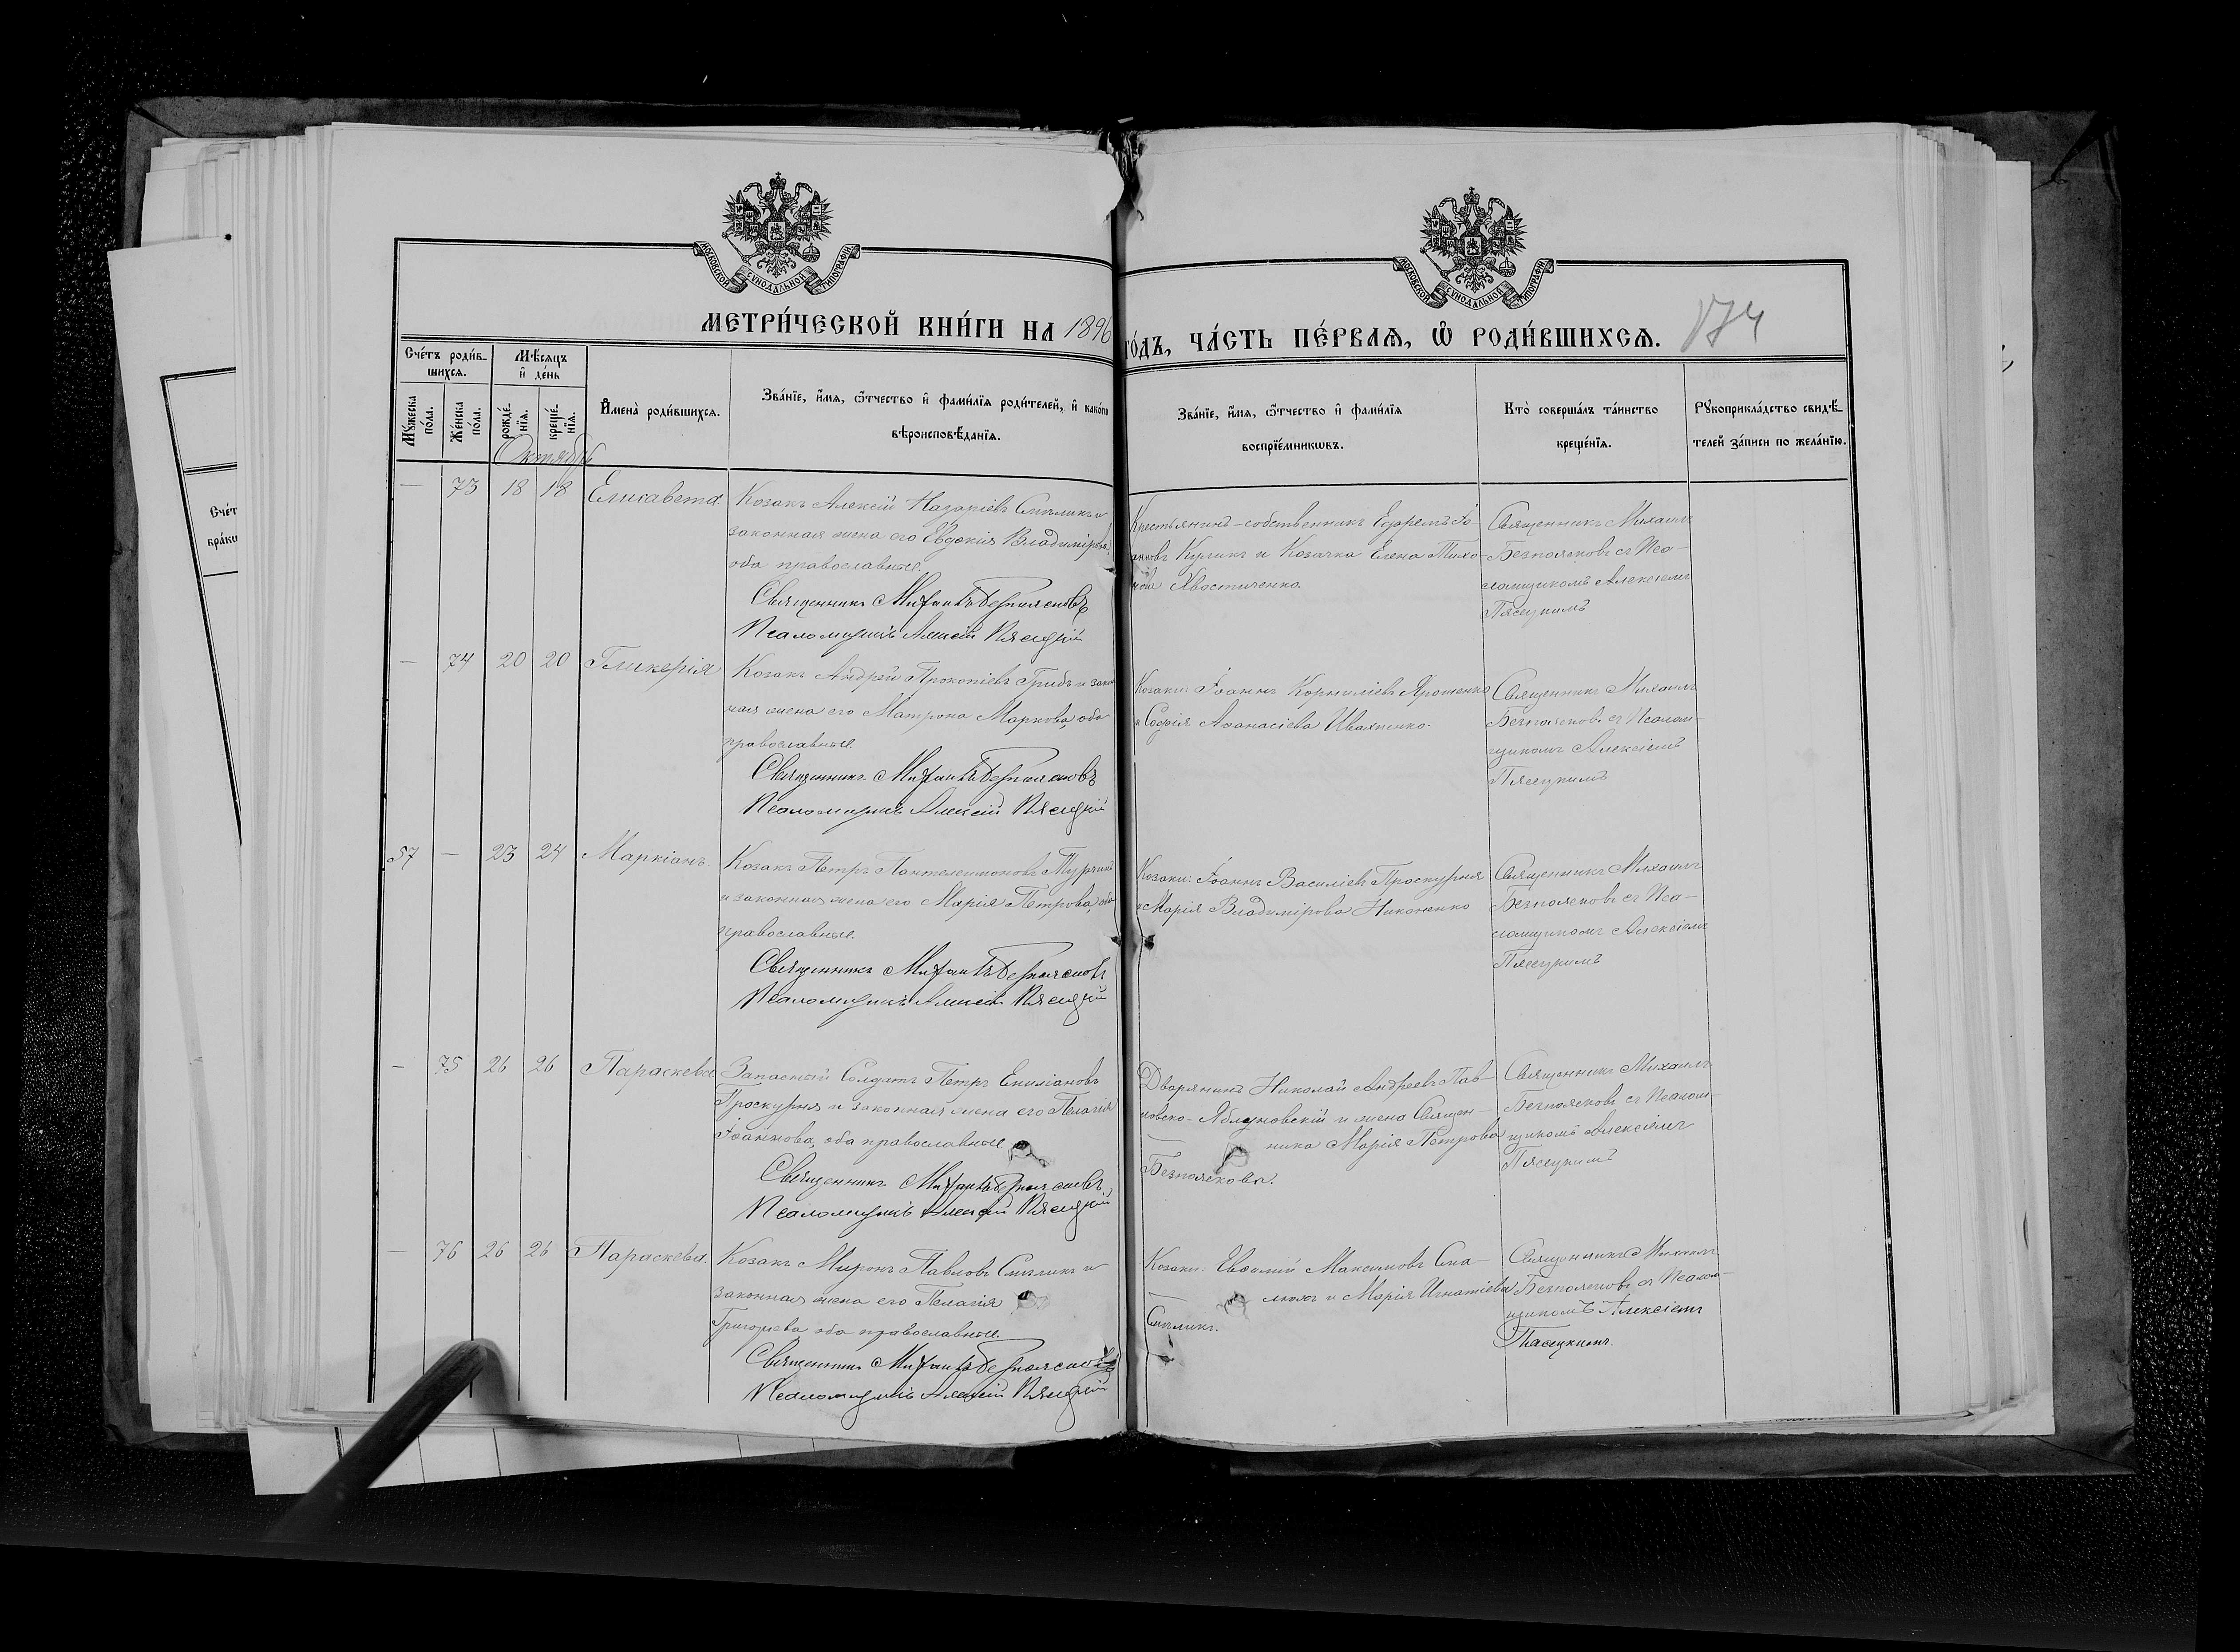 МОСКОВСКОЙ СУНОДАЛЬНОЙ ТИПОГРАФІИ
МОСКОВСКОЙ СУНОДАЛЬНОЙ ТИПОГРАФІИ
МЕТРИ́ЧЕСКОЙ КНИ́ГИ НА 1896
ГО́ДЪ, ЧА́СТЬ ПЕ́РВАЯ, Ѽ РОДИ́ВШИХСЯ. 174
Сче́тъ роди́в-
шихся.
Мѣсяцъ
и де́нь
Мꙋжеска
по́ла.
Же́нска
по́ла.
рожде́-
нїя.
креще́-
нїя.
Имена̀ роди́вшихся.
Зва́нїе, и́мя, ѻ́тчество и фами́лїя роди́телей, и како́гѡ
вѣроисповѣ́данїя.
Зва́нїе, и́мя, ѻ́тчество и фами́лїя
воспрїе́мникѡвъ.
Кто̀ соверша́лъ та́инство
креще́нїя.
Рꙋкоприкла́дство свидѣ́-
телей за́писи по жела́нїю.
Октябрь
— 73 18 18 Елисавета
Козакъ Алексій Назаріевъ Смѣликъ и
законная жена его Евдокія Владимірова,
оба православные.
Священникъ Михаилъ Безпоясковъ
Псаломщикъ Алексій Пясецкій
Крестьянинъ-собственникъ Ефремъ Іо-
анновъ Куликъ и Козачка Елена Тихо-
нова Хвостиченко.
Священникъ Михаилъ
Безпоясковъ съ Пса-
ломщикомъ Алексіемъ
Пясецкимъ
— 74 20 20 Гликерія
Козакъ Андрей Прокопіевъ Грибъ и закон-
ная жена его Матрона Маркова, оба
православные.
Священникъ Михаилъ Безпоясковъ
Псаломщикъ Алексій Пясецкій
Козаки: Іоаннъ Корниліевъ Ярошенко
и Софія Аѳанасіева Ивахненко.
Священникъ Михаилъ
Безпоясковъ съ Псалом-
щикомъ Алексіемъ
Пясецкимъ
57 — 23 24 Маркіанъ.
Козакъ Петръ Пантелеимоновъ Турчинъ
и законная жена его Марія Петрова, оба
православные.
Священникъ Михаилъ Безпоясковъ
Псаломщикъ Алексій Пясецкій
Козаки: Іоаннъ Василіевъ Проскурня
и Марія Владимірова Никоненко
Священникъ Михаилъ
Безпоясковъ съ Пса-
ломщикомъ Алексіемъ
Пясецкимъ
— 75 26 26 Параскева
Запасный Солдатъ Петръ Емиліановъ
Проскурня и законная жена его Пелагія
Іоаннова, оба православные
Священникъ Михаилъ Безпоясковъ
Псаломщикъ Алексій Пясецкій
Дворянинъ Николай Андреевъ Пав-
ловско-Яблуновскій и жена Священ-
ника Марія Петрова
Безпояскова.
Священникъ Михаилъ
Безпоясковъ съ Псалом-
щикомъ Алексіемъ
Пясецкимъ
— 76 26 26 Параскева.
Козакъ Миронъ Павловъ Смѣликъ и
законная жена его Пелагія
Григорьева оба православные.
Священникъ Михаилъ Безпоясковъ
Псаломщикъ Алексій Пясецкій
Козаки: Евѳимій Максимовъ
и Марія Игнатіева
Смѣликъ.
Священникъ Михаилъ
Безпоясковъ съ Псалом-
щикомъ Алексіемъ
Пясецкимъ.
Сче́т
бра́кѡ